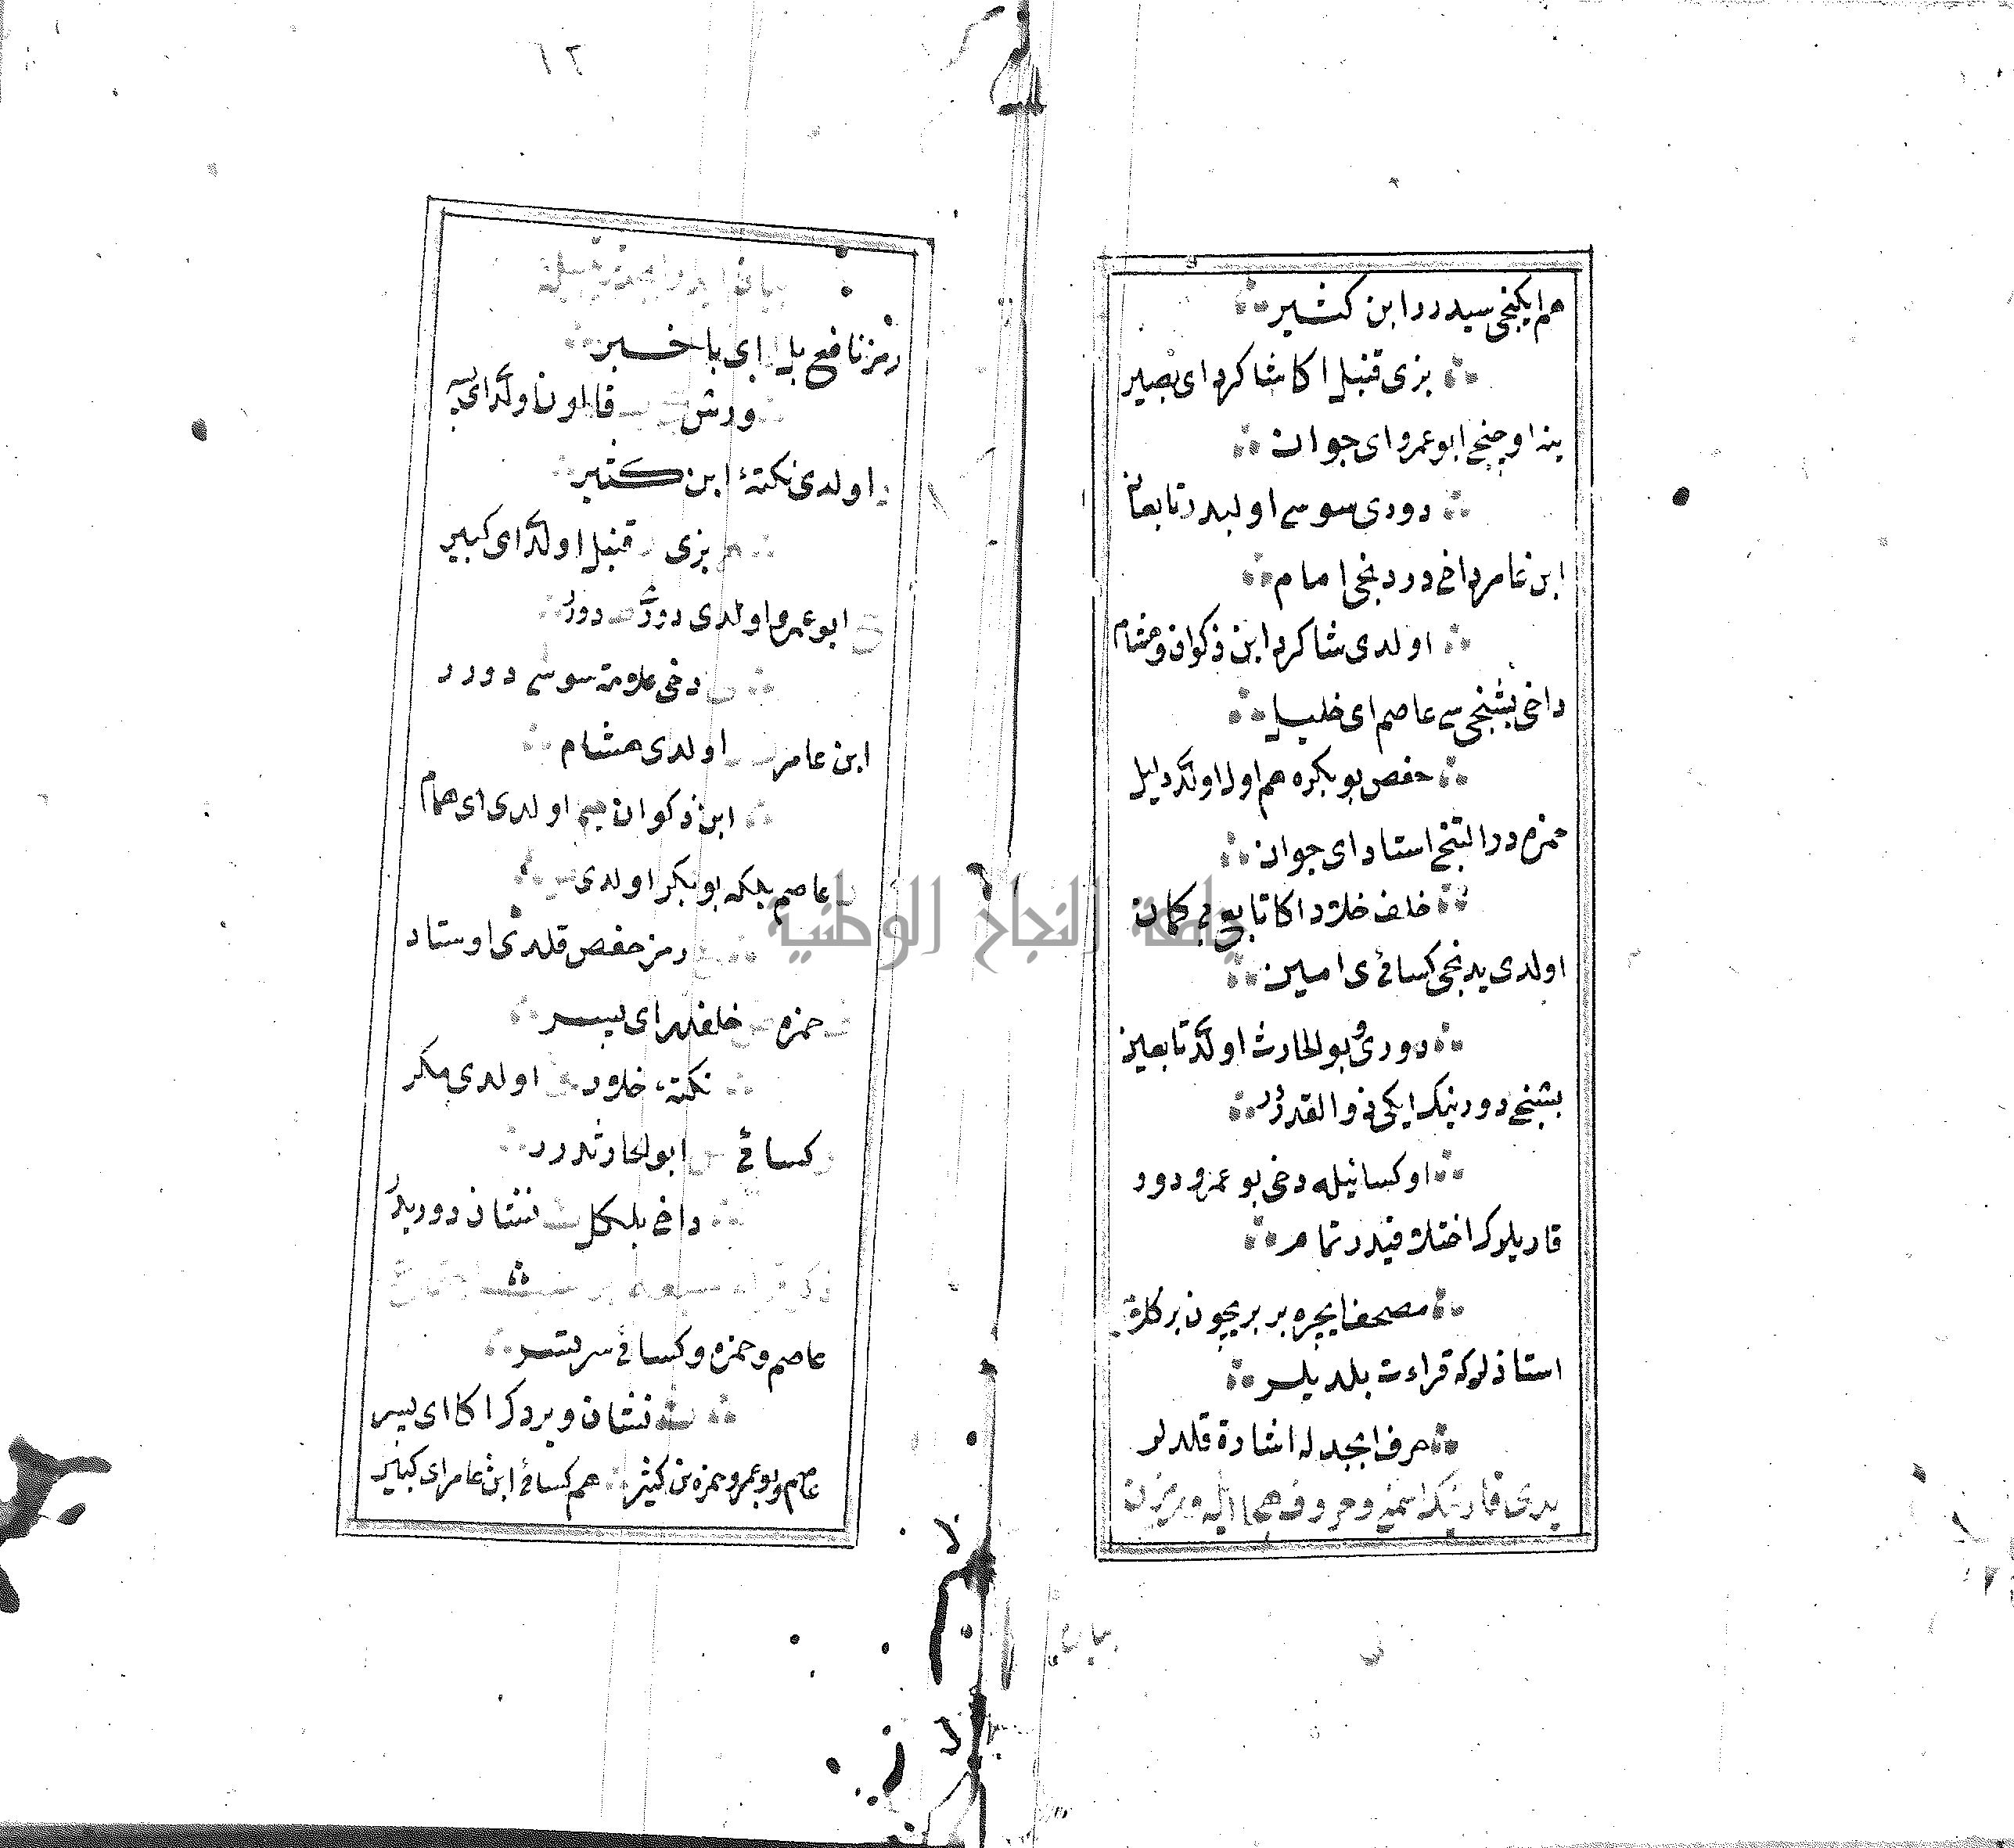 هم ایکنجی سیدر ابن کثیر
بزی قنبل اکا شاکرد ای بصیر
ینه اوچنجی ابو عمرو ای جوان
دوری سوسی اولیدر تابعان
ابن عامر داخی دردنجی امام
اولدی شاکرد ابن ذکوان وهشام
داخی بشنجی سی عاصم ای خلیل
حفص بو بکره هم اول اولدر دلیل
حمزه در التنجی استاد ای جوان
خلف خلاد اکا تابع بی کمان
اولدی یدنجی کسائی ای امین
دوری وبو الحارث اولدر تابعین
بشنجی دورینک ایکی ذو القدر
او کسائیله دخی بو عمرو در
قاریلرکر اختلافیدر تمام
مصحفا یچره بر بریچون بر کلام
استاذلرکه قراءت بلدیلر
حرف ابجدله اشارة قلدلر
یدی قارینک اسمنی وحروف هجا ایله رمزین
بیان
١٢
بیان ایدر
رمز نافع بل ای باخبر
ورش قالون اولدر ای
اولدی نکتهٔ ابن کثیر
بزی قنبل اولدر ای کبیر
ابو عمرو اولدی دور
دخی علامة سوسی دورر
ابن عامر اولدی هشام
ابن ذکوان میم اولدی ای همام
عاصم بلکه بو بکر اولدی
رمز حفص قلدی اوستاد
حمزه خلفدر ای پسر
نکتهٔ خلاد اولدی مکر
کسائی ابو الحارثدرر
داخی بلکل نشان دوریدر
عاصم وحمزه وکسائی سر بسر
نشان ویردکر اکا ای پسر
عاصم وبو عمرو حمزه بن کثیر هم کسائی ابن عامر ای کبیر
جامعة النجاح الوطنية